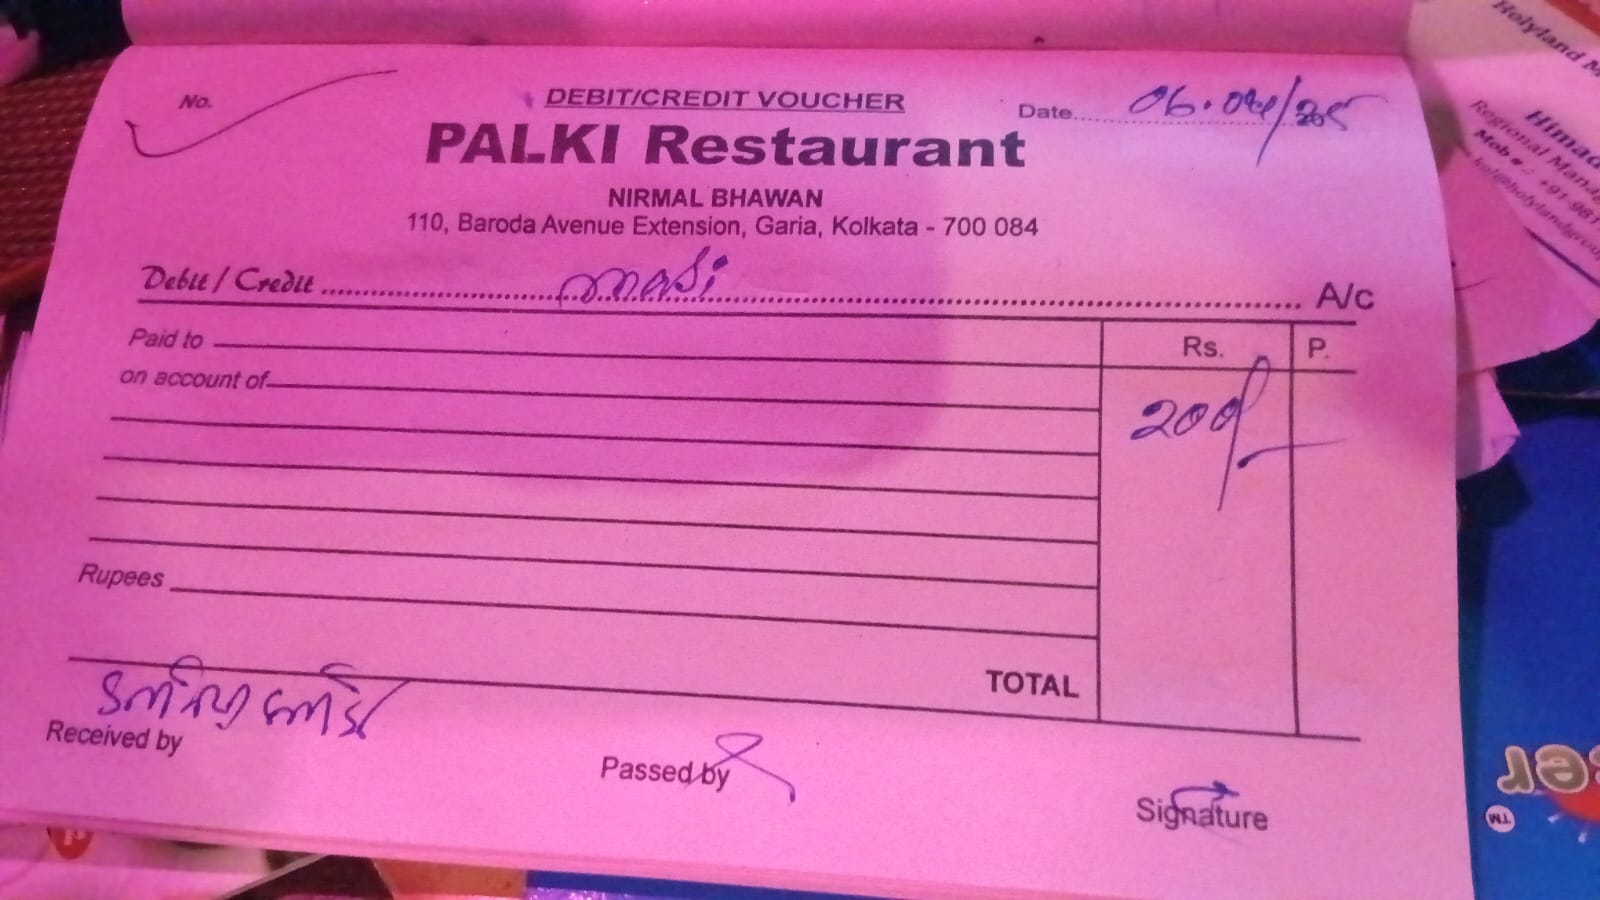 No.
DEBIT/CREDIT VOUCHER
Date 06.04/25
PALKI Restaurant
NIRMAL BHAWAN
110, Baroda Avenue Extension, Garia, Kolkata - 700 084
Debit / Credit masi A/c
Paid to
Rs. P.
on account of
200/-
Rupees
TOTAL
Received by
Passed by
Signature
Holyland
Himad
Regional Mana
Mob
TM